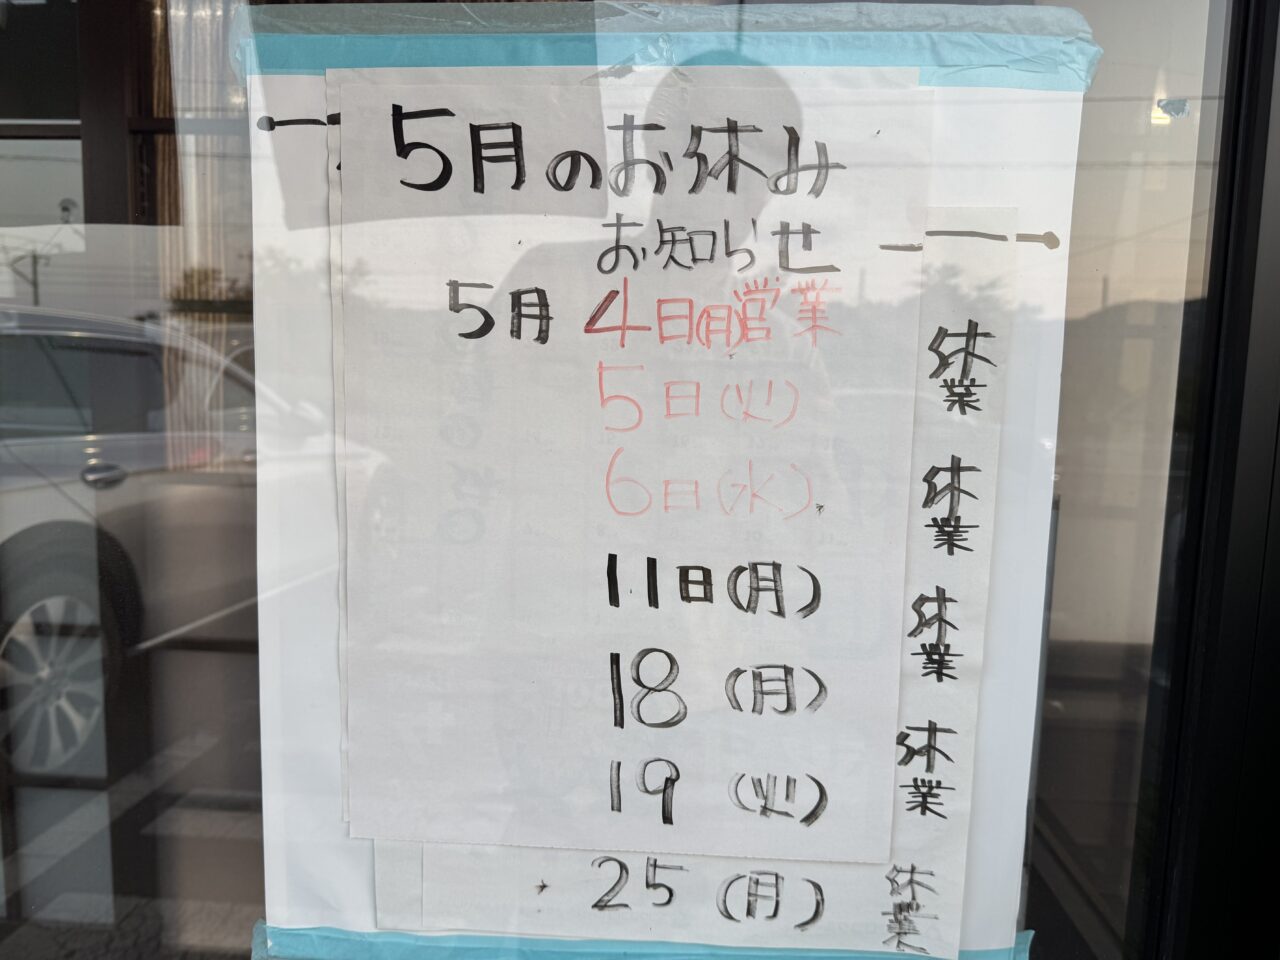 5月のお休み
お知らせ
5月 4日(月)営業
5日(火) 休業
6日(水) 休業
11日(月) 休業
18(月) 休業
19(火)
25(月) 休業